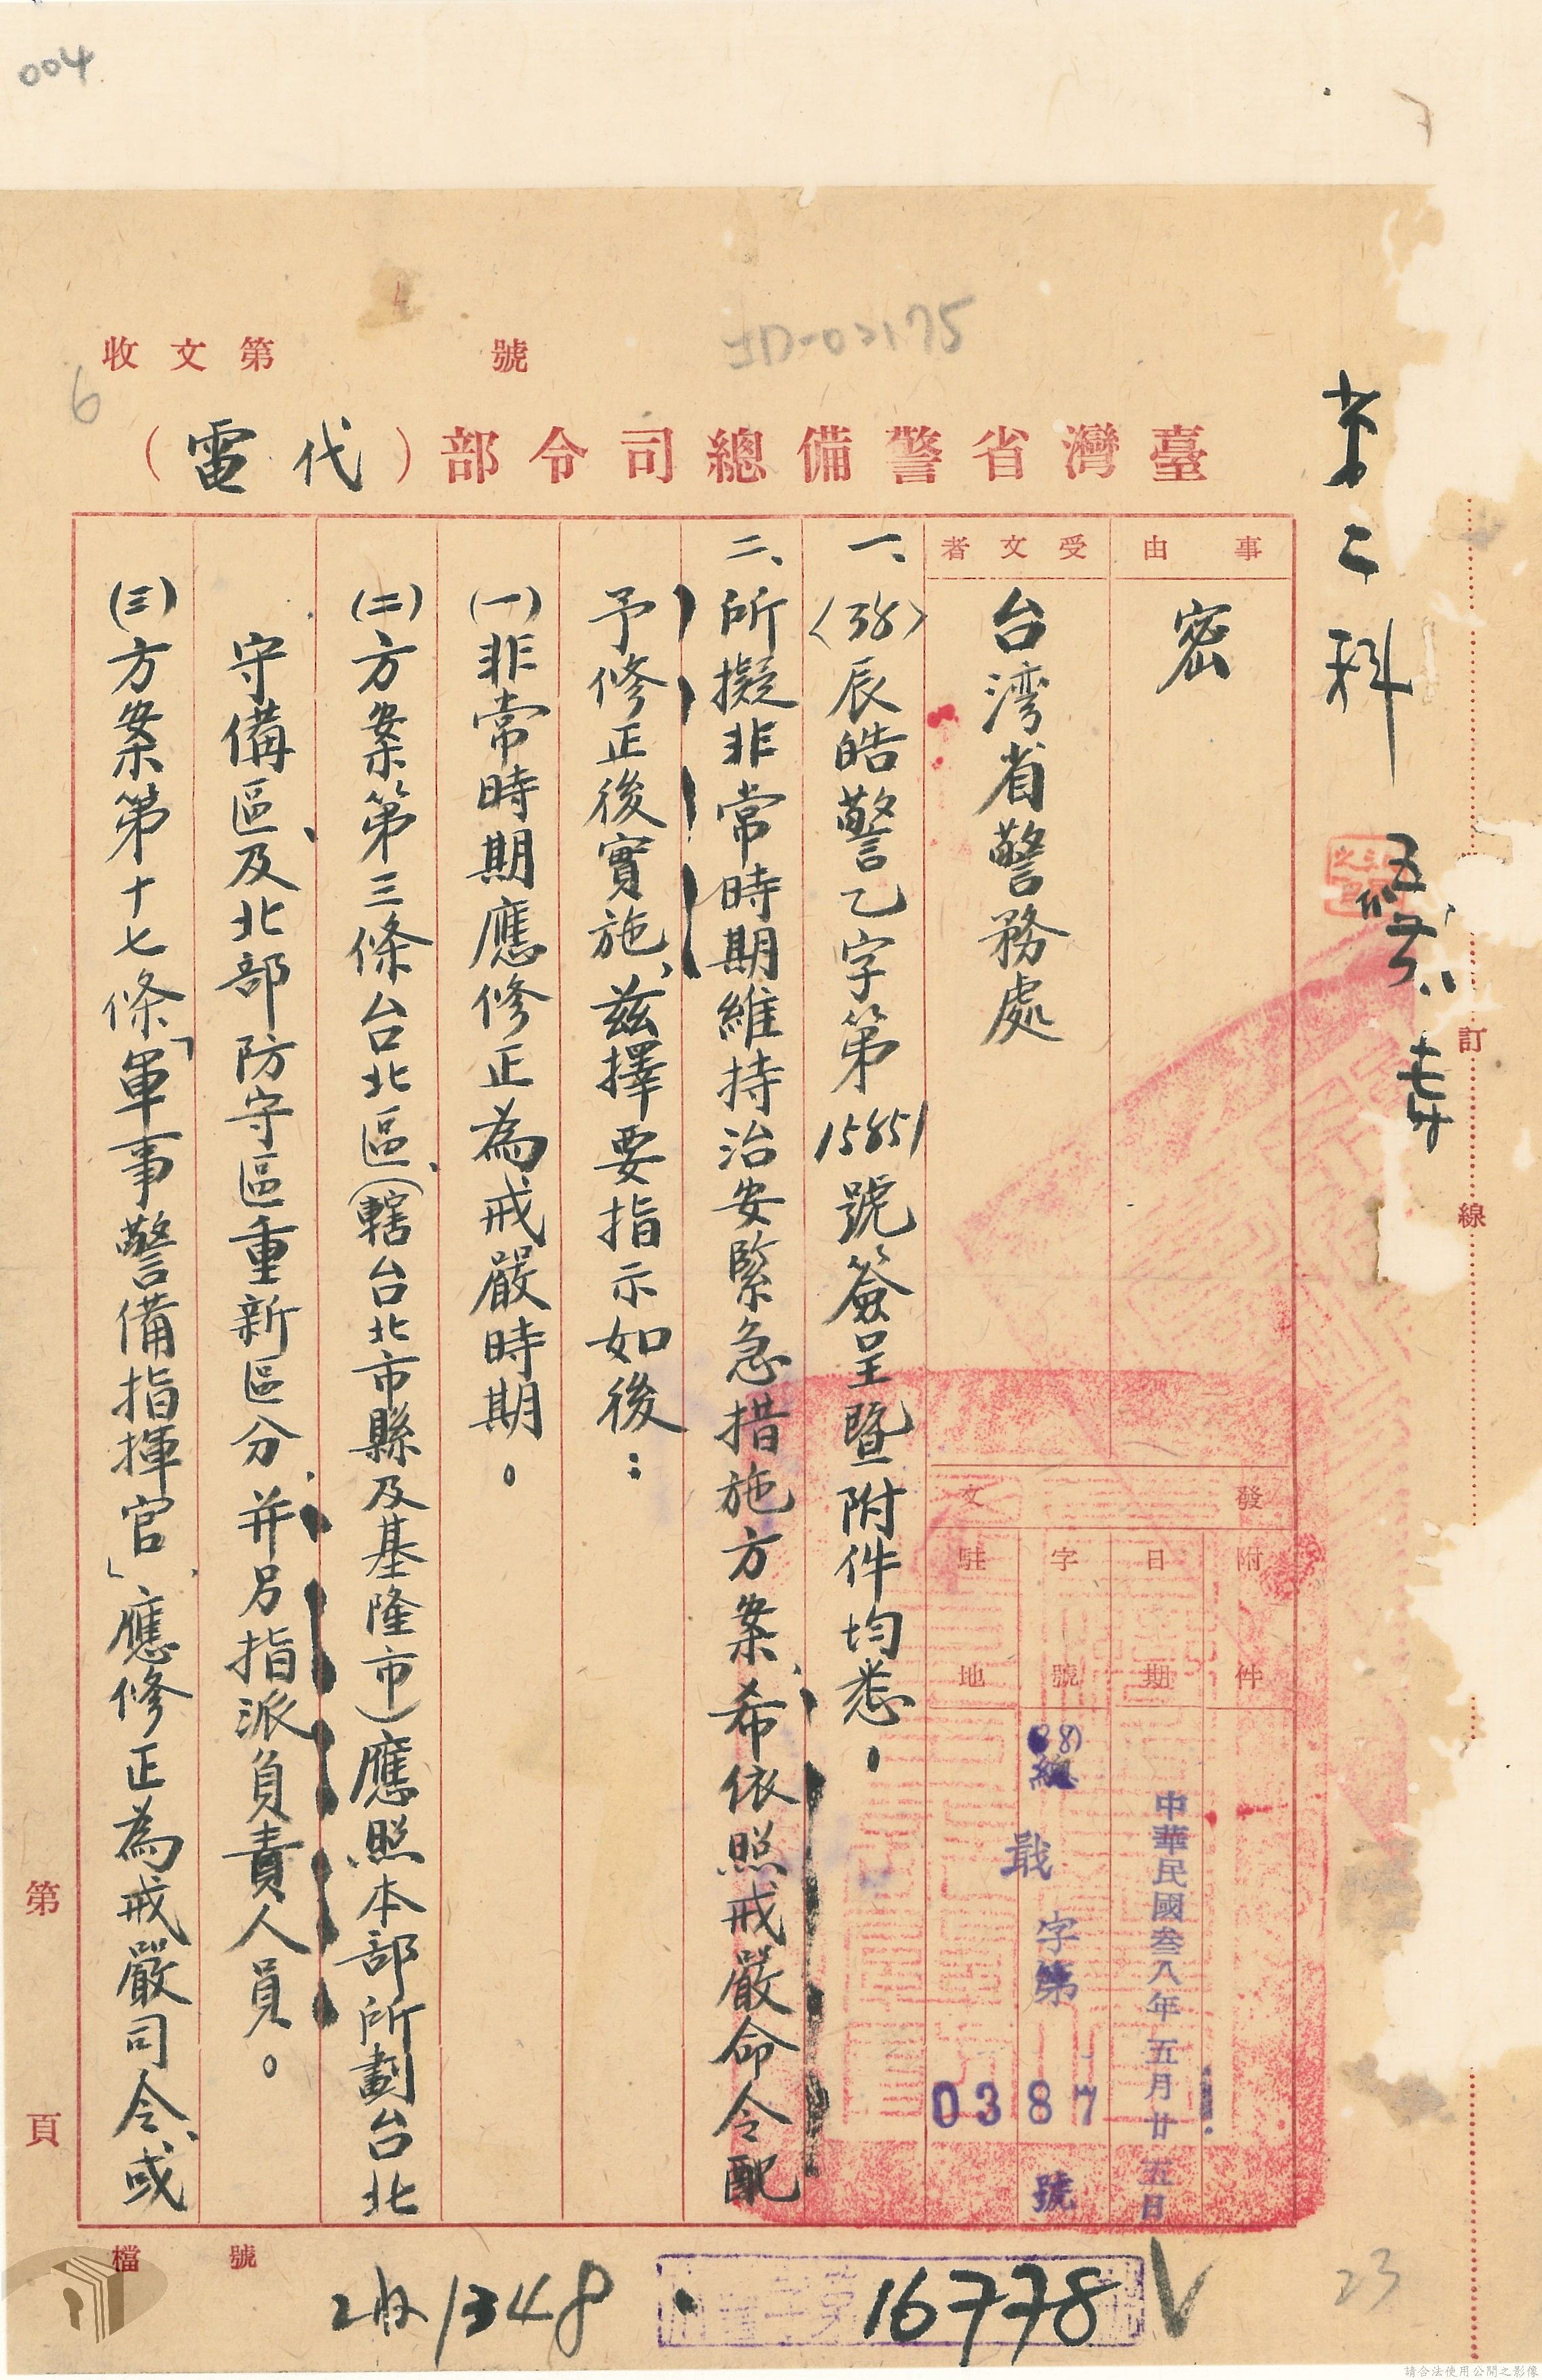 004
7
收文第 號
JD-03175
6
臺灣省警備總司令部(代電)
第二科
事由
密
受文者
台湾省警務處
發文
附件
日期
中華民國叁八年五月廿五日
字號
(38)總戢字第0387號
駐地
一、〈38〉辰皓警乙字第15851號簽呈暨附件均悉。
二、所擬非常時期維持治安緊急措施方案、希依照戒嚴命令配
予修正後實施、茲擇要指示如後：
(一)非常時期應修正為戒嚴時期。
(二)方案第三條台北區、(轄台北市縣及基隆市)應照本部所劃台北
守備區、及北部防守區重新區分、并另指派負責人員。
(三)方案第十七條「軍事警備指揮官」、應修正為戒嚴司令、或
訂
線
第 頁
檔 號
1348
16778
23
請合法使用公開之影像